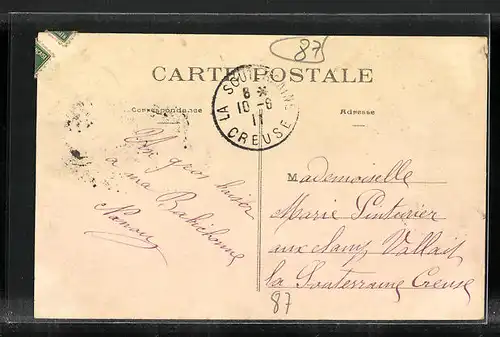 87
CARTE POSTALE
LA SOUTERRAINE
8 *
10 - 6
11
CREUSE
Correspondance
Adresse
Un gros baiser
à ma
Mademoiselle
Marie Pinturier
aux
la Souterraine Creuse
87